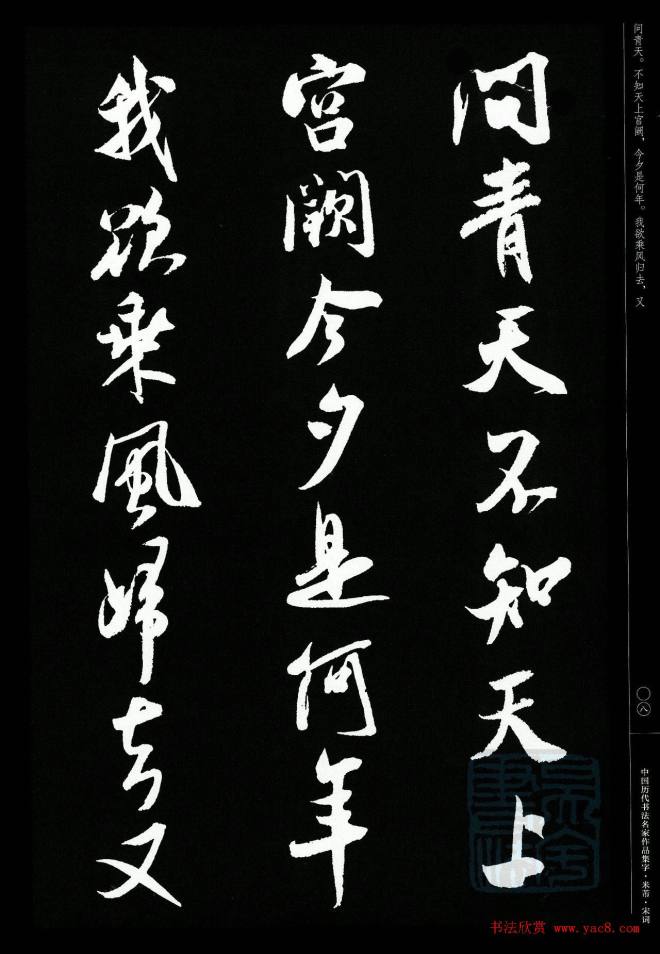 问青天。不知天上宫阙，今夕是何年。我欲乘风归去，又
問青天不知天上
宮闕今夕是何年
我欲乘風歸去又
〇八
中国历代书法名家作品集字·米芾·宋词
书法欣赏 www.yac8.com